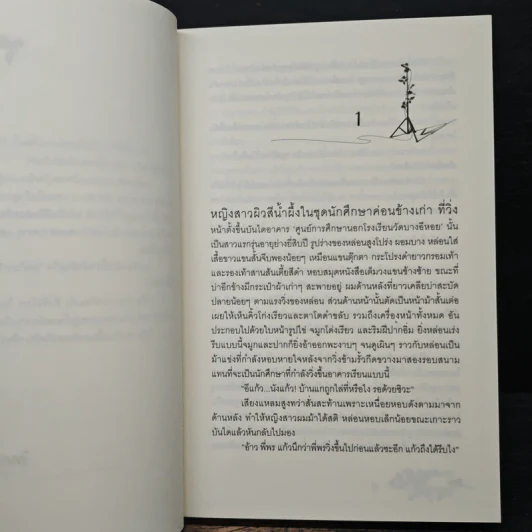 1
หญิงสาวผิวสีน้ำผึ้งในชุดนักศึกษาค่อนข้างเก่า ที่วิ่ง
หน้าตั้งขึ้นบันไดอาคาร ‘ศูนย์การศึกษานอกโรงเรียนวัดบางอีหอย’ นั้น
เป็นสาวแรกรุ่นอายุย่างยี่สิบปี รูปร่างของหล่อนสูงโปร่ง ผอมบาง หล่อนใส่
เสื้อขาวแขนสั้นจีบพองน้อยๆ เหมือนแขนตุ๊กตา กระโปรงดำยาวกรอมเท้า
และรองเท้าสานส้นเตี้ยสีดำ หอบสมุดหนังสือเต็มวงแขนข้างซ้าย ขณะที่
บ่าอีกข้างมีกระเป๋าผ้าเก่าๆ สะพายอยู่ ผมด้านหลังที่ยาวเคลียบ่าสะบัด
ปลายน้อยๆ ตามแรงวิ่งของหล่อน ส่วนด้านหน้านั้นตัดเป็นหน้าม้าสั้นเต่อ
เผยให้เห็นคิ้วโก่งเรียวและตาโตดำขลับ รวมถึงเครื่องหน้าทั้งหมด อัน
ประกอบไปด้วยใบหน้ารูปไข่ จมูกโด่งเรียว และริมฝีปากอิ่ม ยิ่งหล่อนเร่ง
รีบแบบนี้จมูกและปากก็ยิ่งอ้าออกพะงาบๆ จนดูเผินๆ ราวกับหล่อนเป็น
ม้าแข่งที่กำลังหอบหายใจหลังจากวิ่งข้ามรั้วกีดขวางมาสองรอบสนาม
แทนที่จะเป็นนักศึกษาที่กำลังวิ่งขึ้นอาคารเรียนแบบนี้
“อีแก้ว...นังแก้ว! บ้านแกถูกไล่ที่หรือไง รอด้วยซิวะ”
เสียงแหลมสูงทว่าสั่นสะท้านเพราะเหนื่อยหอบดังตามมาจาก
ด้านหลัง ทำให้หญิงสาวผมม้าได้สติ หล่อนหอบเล็กน้อยขณะเกาะราว
บันไดแล้วหันกลับไปมอง
“อ้าว พี่พร แก้วนึกว่าพี่พรวิ่งขึ้นไปก่อนแล้วซะอีก แก้วถึงได้รีบไง”